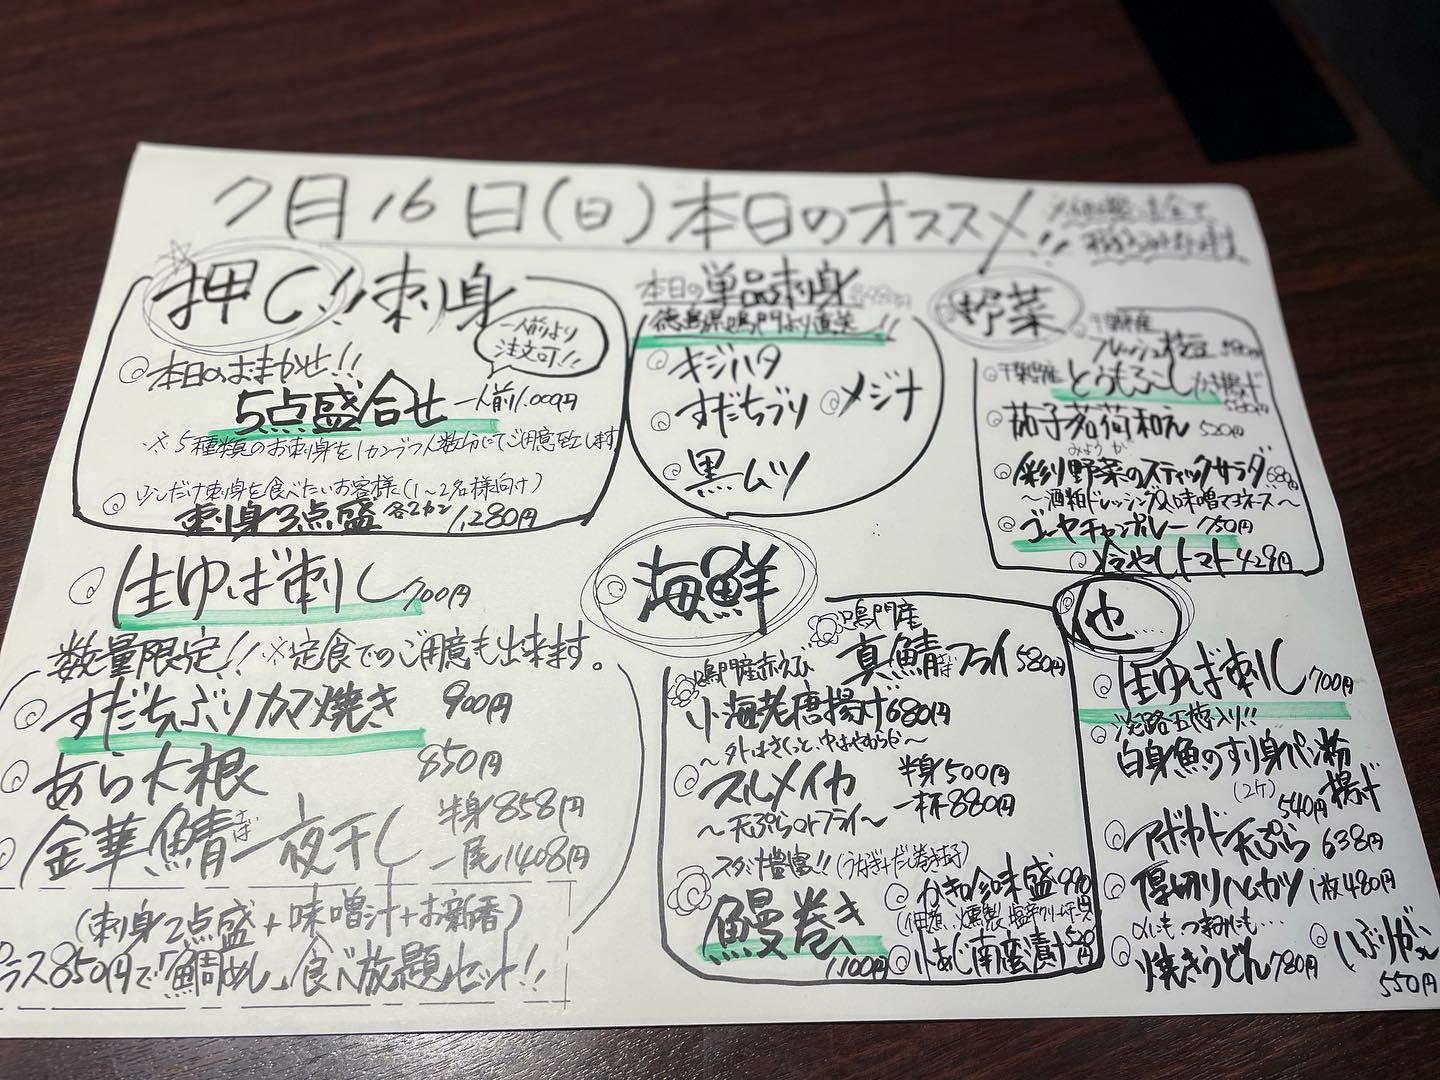 7月16日(日)本日のオススメ!!
押し!!刺身
一人前より
注文可!!
本日のおまかせ!!
5点盛合せ 一人前1,000円
※5種類のお刺身を1カンづつ人数分にてご用意致します
少しだけ刺身を食べたいお客様(1~2名様向け)
刺身3点盛 各2カン 1,280円
本日の単品刺身
徳島県鳴門より直送!!
キジハタ
すだちブリ
メジナ
黒ムツ
野菜
千葉県産
フレッシュ枝豆 580円
千葉県産 とうもろこしかき揚げ 580円
茄子茗荷和え 520円
みょうが
彩り野菜のスティックサラダ 680円
~酒粕ドレッシング&味噌マヨネーズ~
ゴーヤチャンプルー 750円
冷やしトマト 429円
生ゆば刺し 700円
数量限定!!※定食でのご用意も出来ます。
すだちぶりカマ焼き 900円
あら大根 850円
金華鯖一夜干し 半身858円
さば
一尾1408円
(刺身2点盛+味噌汁+お新香)
プラス850円で「鯛めし」食べ放題セット!!
海鮮
鳴門産
真鯖フライ 580円
さば
鳴門産赤えび
小海老唐揚げ 680円
~外はさくっと、中はやわらか~
スルメイカ 半身500円
一杯880円
~天ぷらorフライ~
スタミナ豊富!! (うなぎ+だし巻き玉子)
鰻巻き
1,100円
かき珍味盛 990円
小あじ南蛮漬け 520円
他
生ゆば刺し 700円
淡路玉葱入り!!
白身魚のすり身パン粉
揚げ
(2ケ) 540円
アボカド天ぷら 638円
厚切りハムカツ 1枚480円
〆にも つまみにも…
焼きうどん 780円
いぶりがっこ
550円